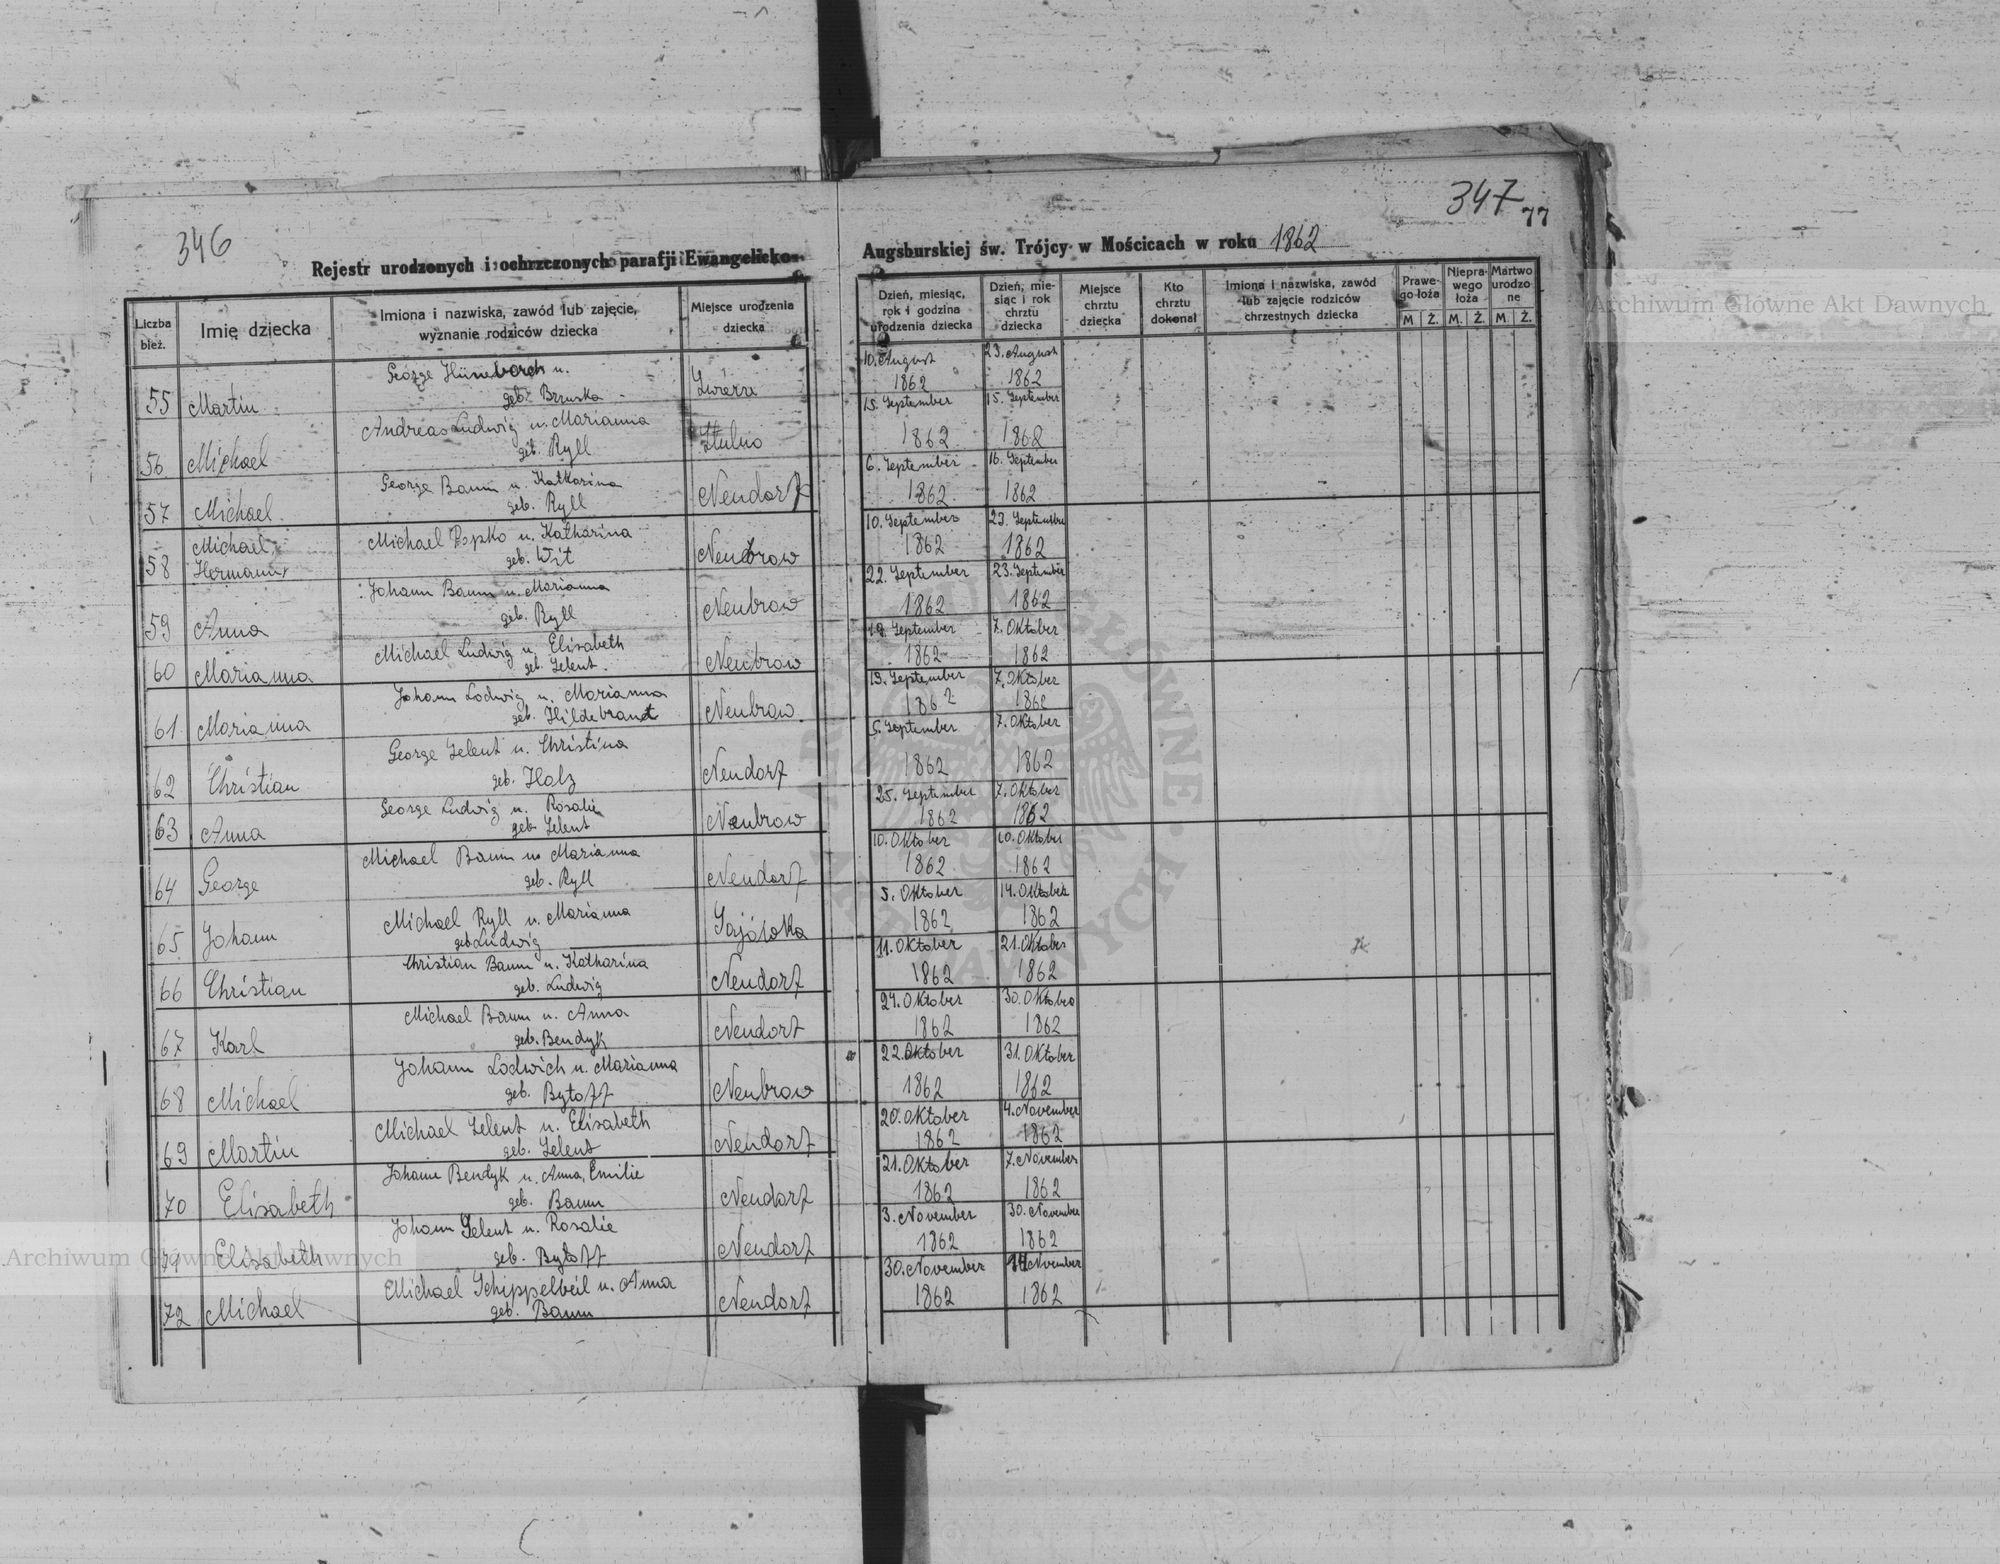 346
347
77
Rejestr urodzonych i ochrzczonych parafji Ewangelicko-
Augsburskiej św. Trójcy w Mościcach w roku 1862
Liczba bież.
Imię dziecka
Imiona i nazwiska, zawód lub zajęcie, wyznanie rodziców dziecka
Miejsce urodzenia dziecka
Dzień, miesiąc, rok i godzina urodzenia dziecka
Dzień, miesiąc i rok chrztu dziecka
Miejsce chrztu dziecka
Kto chrztu dokonał
Imiona i nazwiska, zawód lub zajęcie rodziców chrzestnych dziecka
Prawego łoża
Nieprawego łoża
Martwo urodzone
M. Ż. M. Ż. M. Ż.
55 Martin George Hüneborch u. geb. Bzuska 10. August 1862 23. August 1862
56 Michael Andreas Ludwig u. Marianna geb. Ryll Stulno 15. September 1862 15. September 1862
57 Michael George Baum u. Katharina geb. Ryll Neudorf 6. September 1862 16. September 1862
58 Michael Hermann Michael Popko u. Katharina geb. Wit Neubrow 10. September 1862 23. September 1862
59 Anna Johann Baum u. Marianna geb. Ryll Neubrow 22. September 1862 23. September 1862
60 Marianna Michael Ludwig u. Elisabeth geb. Zelent Neubrow September 1862 7. Oktober 1862
61 Marianna Johann Lodwig u. Marianna geb. Hildebrandt Neubrow 19. September 1862 7. Oktober 1862
62 Christian George Zelent u. Christina geb. Holz Neudorf 5. September 1862 7. Oktober 1862
63 Anna George Ludwig u. Rosalie geb. Zelent Neubrow 25. September 1862 7. Oktober 1862
64 George Michael Baum u. Marianna geb. Ryll Neudorf 10. Oktober 1862 10. Oktober 1862
65 Johann Michael Ryll u. Marianna geb. Ludwig Sajówka 5. Oktober 1862 14. Oktober 1862
66 Christian Christian Baum u. Katharina geb. Ludwig Neudorf 11. Oktober 1862 21. Oktober 1862
67 Karl Michael Baum u. Anna geb. Bendyk Neudorf Oktober 1862 30. Oktober 1862
68 Michael Johann Lodwich u. Marianna geb. Bytoff Neubrow 22. Oktober 1862 31. Oktober 1862
69 Martin Michael Zelent u. Elisabeth geb. Zelent Neudorf 20. Oktober 1862 4. November 1862
70 Elisabeth Johann Bendyk u. Anna, Emilie geb. Baum Neudorf 21. Oktober 1862 7. November 1862
71 Elisabeth Johann Zelent u. Rosalie geb. Bytoff Neudorf 3. November 1862 30. November 1862
72 Michael Michael Schippelbeil u. Anna geb. Baum Neudorf 30. November 1862 November 1862
Archiwum Główne Akt Dawnych
Archiwum Główne Akt Dawnych
ARCHIWUM GŁÓWNE AKT DAWNYCH